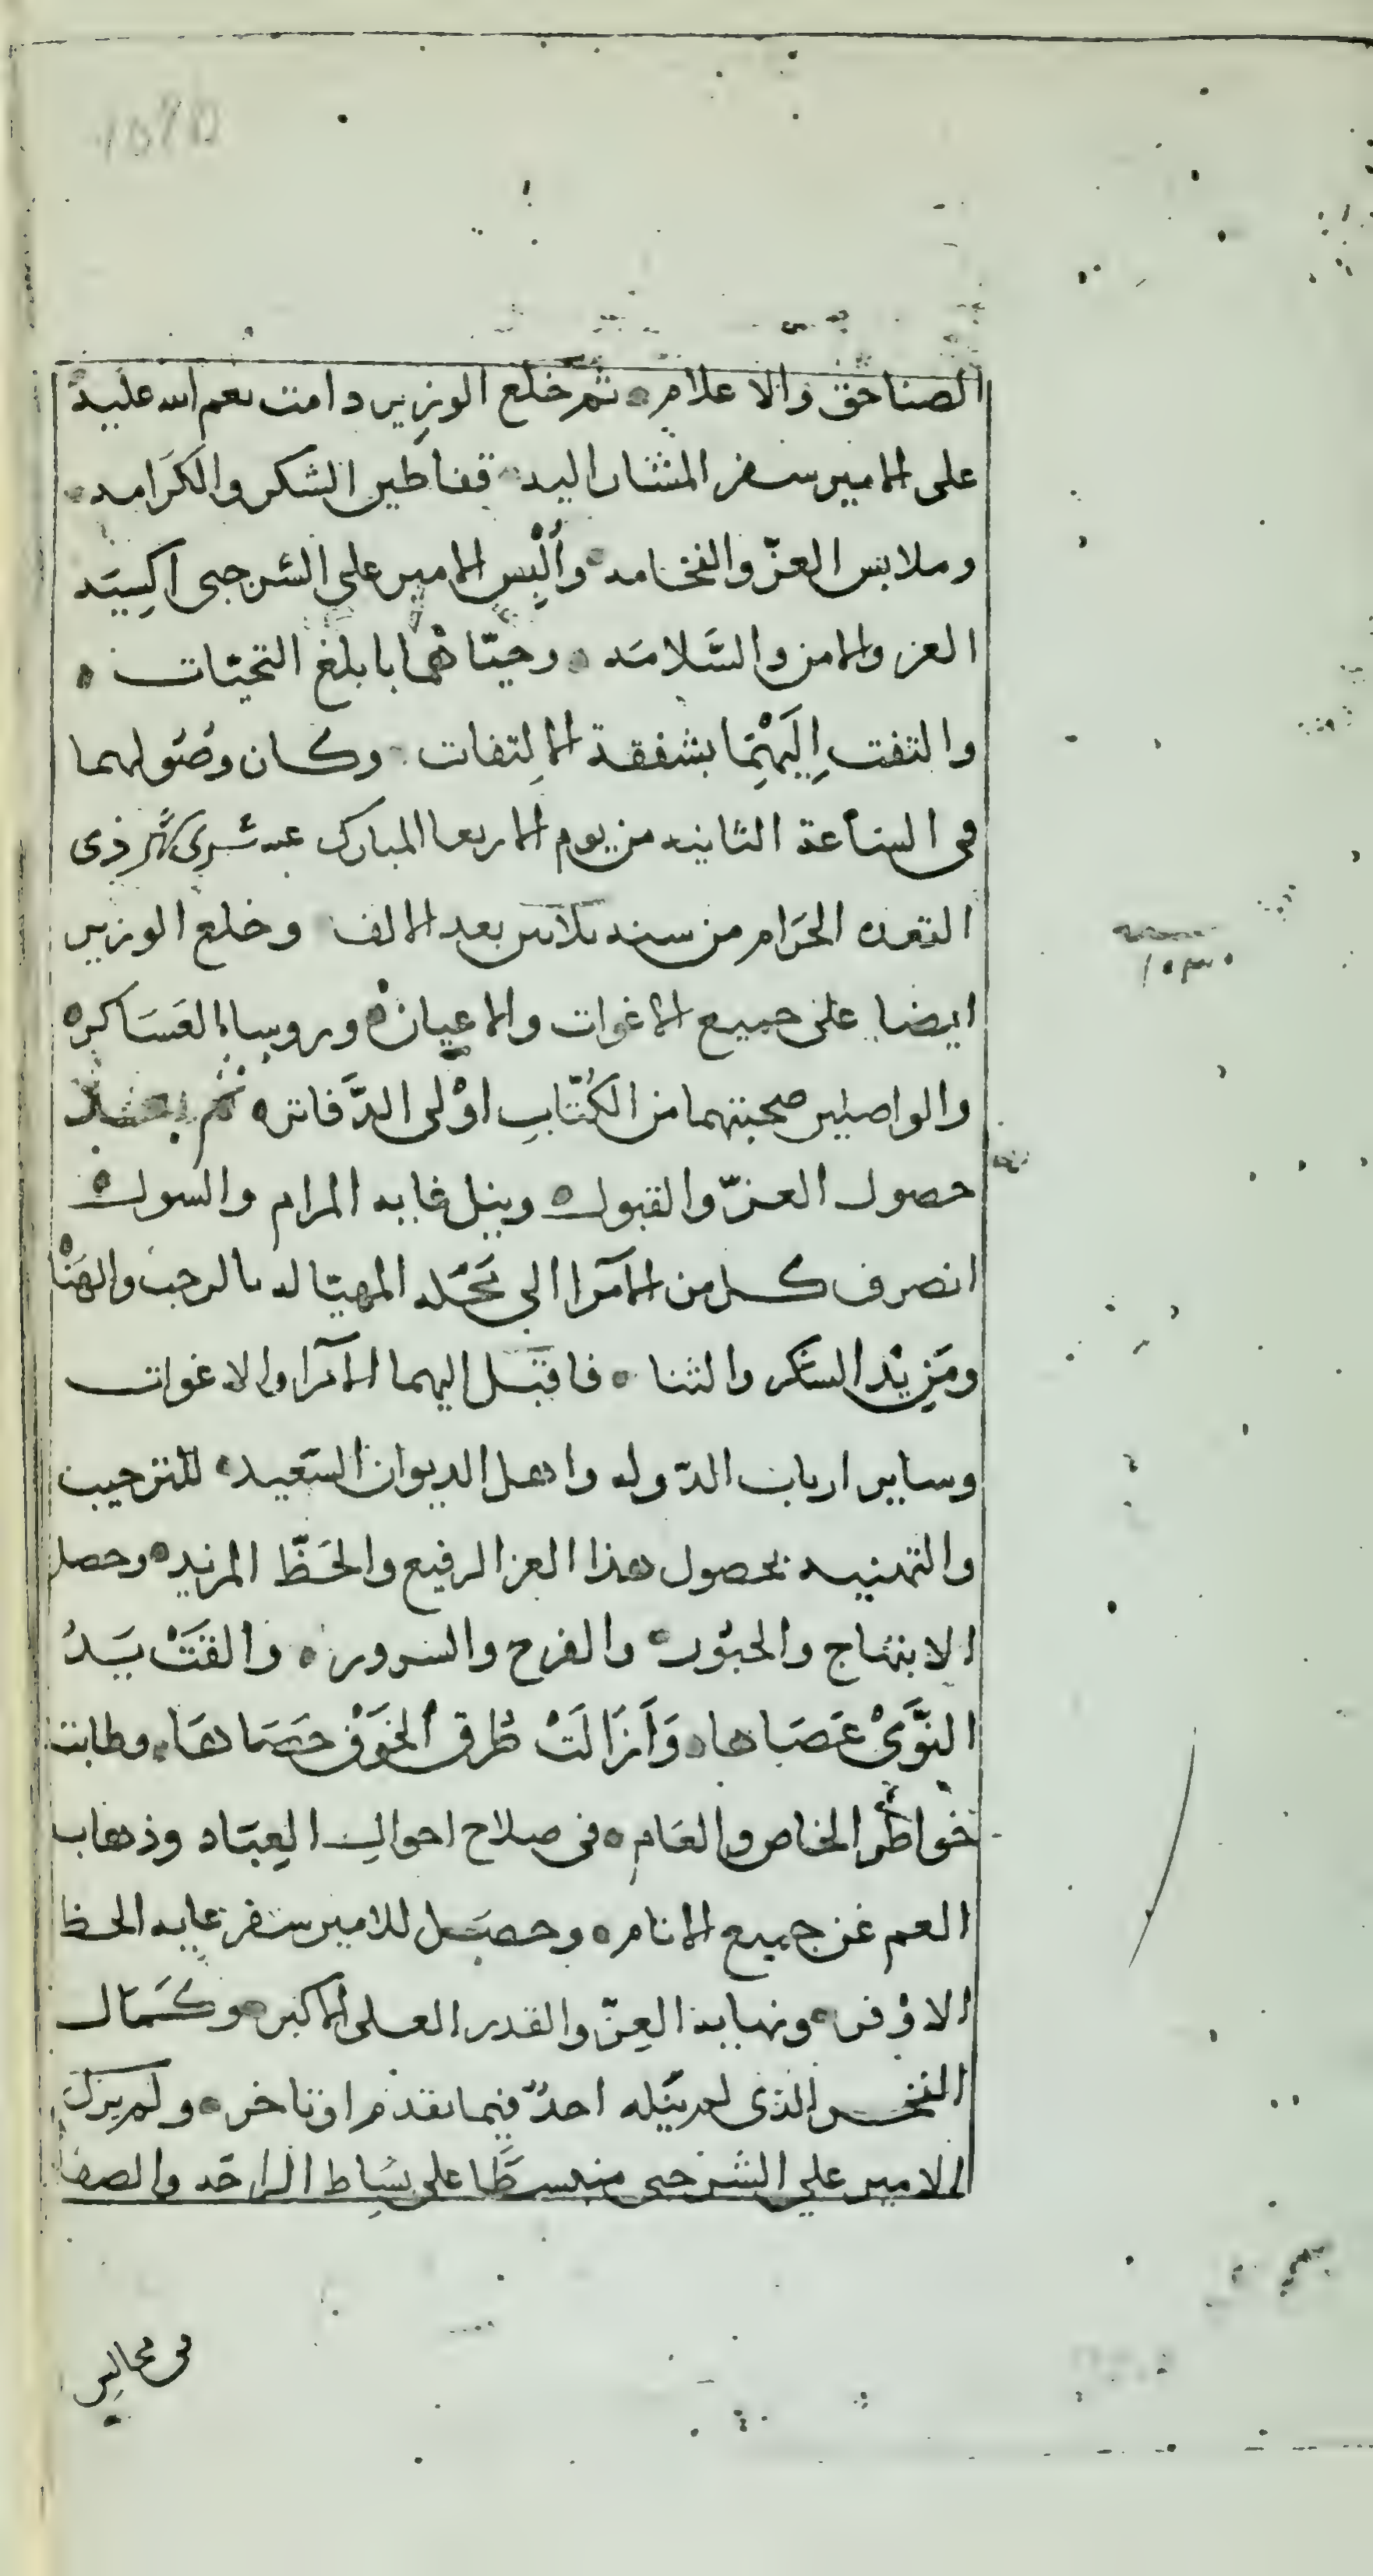 الصناجق والاعلام ثم خلع الوزير دامت نعم الله عليه
على الامير سفر المشار اليه قفاطين الشكر والكرامه
وملابس العزّ والفخامه وأُلْبِس الامير على الشرجبى اكسِيَه
العز والامن والسَّلامَه وحيّاهُما بابلغ التحيّات
والتفت إِليَهْمِا بشفقة الالِتفات وكان وصُولهما
فى السّاعة الثانيه من يوم الاربعا المبارك عشرى شهر ذى
القعده الحَرام من سنه ثلاثين بعد الالف وخلع الوزير
ايضا على جميع الاغوات والاعيانْ وروساء العَسَاكر
والواصلين صحبتهما من الكُتّابِ اوْلى الدَّفاتر ثم بعد
حصول العزّ والقبول ونيل غايه المرام والسول
انصرف كل من الامَرا الى مَحَلّه المهيّا له بالرحب والهَنْا
ومَزِيْد الشكر والثنا فاقبَل اليهما الامَرا والاغوات
وساير ارباب الدّوله واهل الديوان السَّعيد للترحيب
والتهنيه بحصول هذا العز الرفيع والحَظّ المزيد وحصل
الابتهاج والحبُور والفرح والسرور والقَتْ يَدُ
النَّوَىْ عَصَاها وَاَزَالَتْ طُرق الخَوَفْ حَصَاهَا وطابت
خواطر الخاص والعَام فى صلاح احوالِ العِبَاد وذهاب
الغم عَن جميع الانام وحصَل للامير سفر غايه الحظ
الاوْفر ونهاية العِزّ والقدر العلى الاكبر وكَمَال
الفخر الذى لم ينَله احدٌ فيما تقدم او تاخر ولم يزل
الامير على الشرجبى منبسطًا على بسَاط الراحَه والصفا
سنه
١٠٣٠
فى مجالس